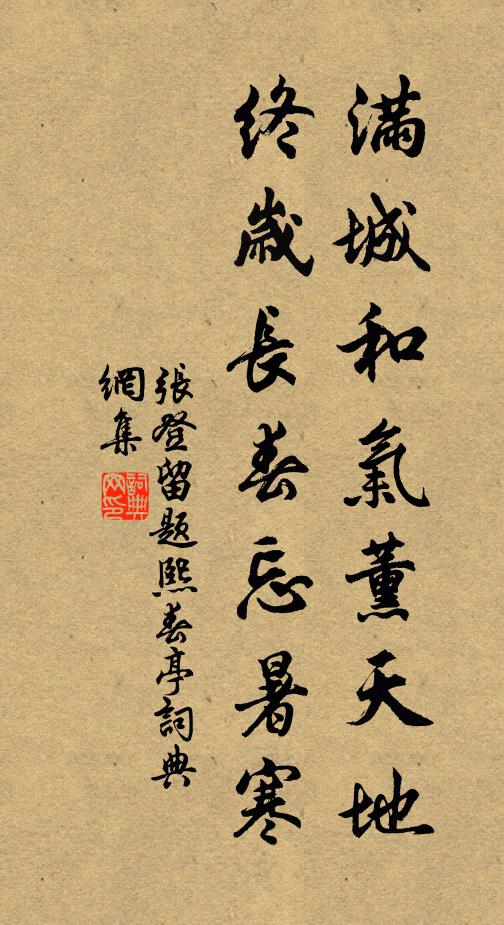 滿城和氣薰天地
終歲長春忘暑寒
張登留題熙春亭詞典
網集
詞典網印